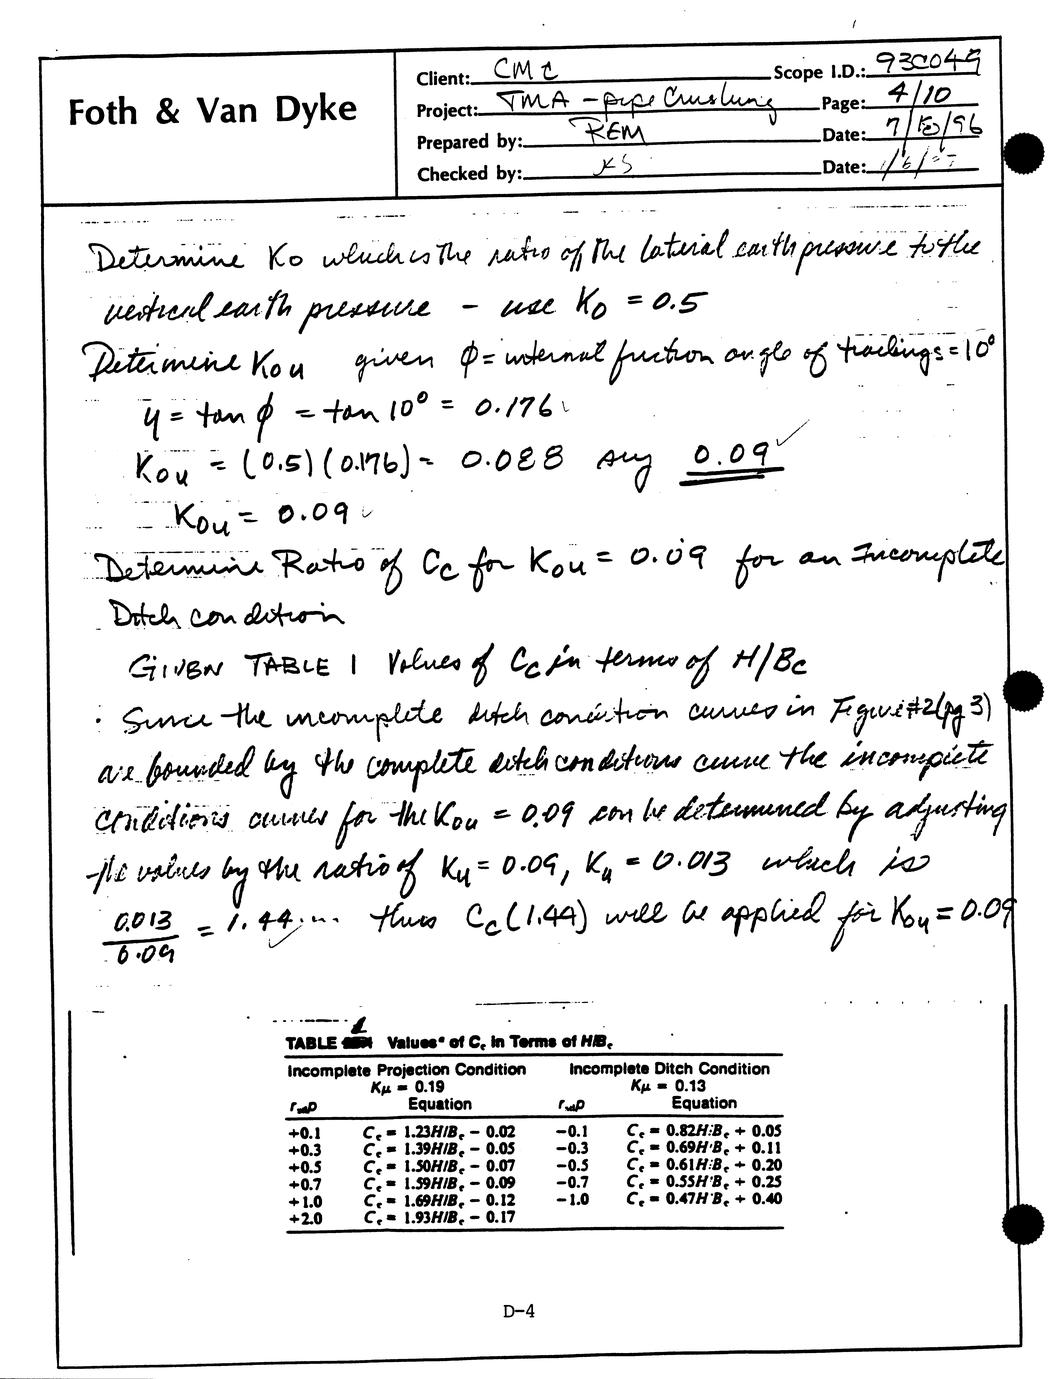 Foth & Van Dyke
Client: CMC Scope I.D.: 93C049
Project: TMA - pipe Crushing Page: 4/10
Prepared by: REM Date: 7/ /96
Checked by: Date:
Determine Ko which is the ratio of the lateral earth pressure to the
vertical earth pressure - use Ko = 0.5
Determine Kou given ϕ = internal friction angle of tailings = 10°
u = tan ϕ = tan 10° = 0.176
Kou = (0.5)(0.176) = 0.088 say 0.09 ✓
Kou = 0.09
Determine Ratio of Cc for Kou = 0.09 for an Incomplete
Ditch condition
GIVEN TABLE 1 Values of Cc in terms of H/Bc
· Since the incomplete ditch condition curves in Figure #2 (pg 3)
are bounded by the complete ditch conditions curve the incomplete
conditions curves for the Kou = 0.09 can be determined by adjusting
the values by the ratio of Ku = 0.09, Ku = 0.013 which is
0.013
0.09 = 1.44 thus Cc (1.44) will be applied for Kou = 0.09
TABLE 1 Values* of Cc in Terms of H/Bc
Incomplete Projection Condition Incomplete Ditch Condition
Kμ = 0.19 Kμ = 0.13
rsdp Equation rsdp Equation
+0.1 Cc = 1.23H/Bc − 0.02 −0.1 Cc = 0.82H/Bc + 0.05
+0.3 Cc = 1.39H/Bc − 0.05 −0.3 Cc = 0.69H/Bc + 0.11
+0.5 Cc = 1.50H/Bc − 0.07 −0.5 Cc = 0.61H/Bc + 0.20
+0.7 Cc = 1.59H/Bc − 0.09 −0.7 Cc = 0.55H/Bc + 0.25
+1.0 Cc = 1.69H/Bc − 0.12 −1.0 Cc = 0.47H/Bc + 0.40
+2.0 Cc = 1.93H/Bc − 0.17
D-4